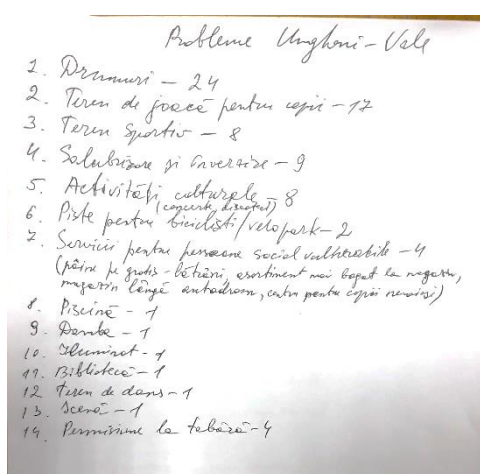 Probleme Ungheni-Vale
1. Drumuri - 24
2. Teren de joacă pentru copii - 17
3. Teren sportiv - 8
4. Salubrizare și înverzire - 9
5. Activități culturale - 8
(concerte, discoteci)
6. Piste pentru bicicliști/velopark - 2
7. Servicii pentru persoane social vulnerabile - 4
(pâine pe gratis - bătrâni, asortiment mai bogat la magazin,
magazin lângă autodrom, centru pentru copii nevoiași)
8. Piscină - 1
9. Damba - 1
10. Iluminat - 1
11. Bibliotecă - 1
12 Teren de dans - 1
13. Scenă - 1
14. Permisiune la tabără - 4